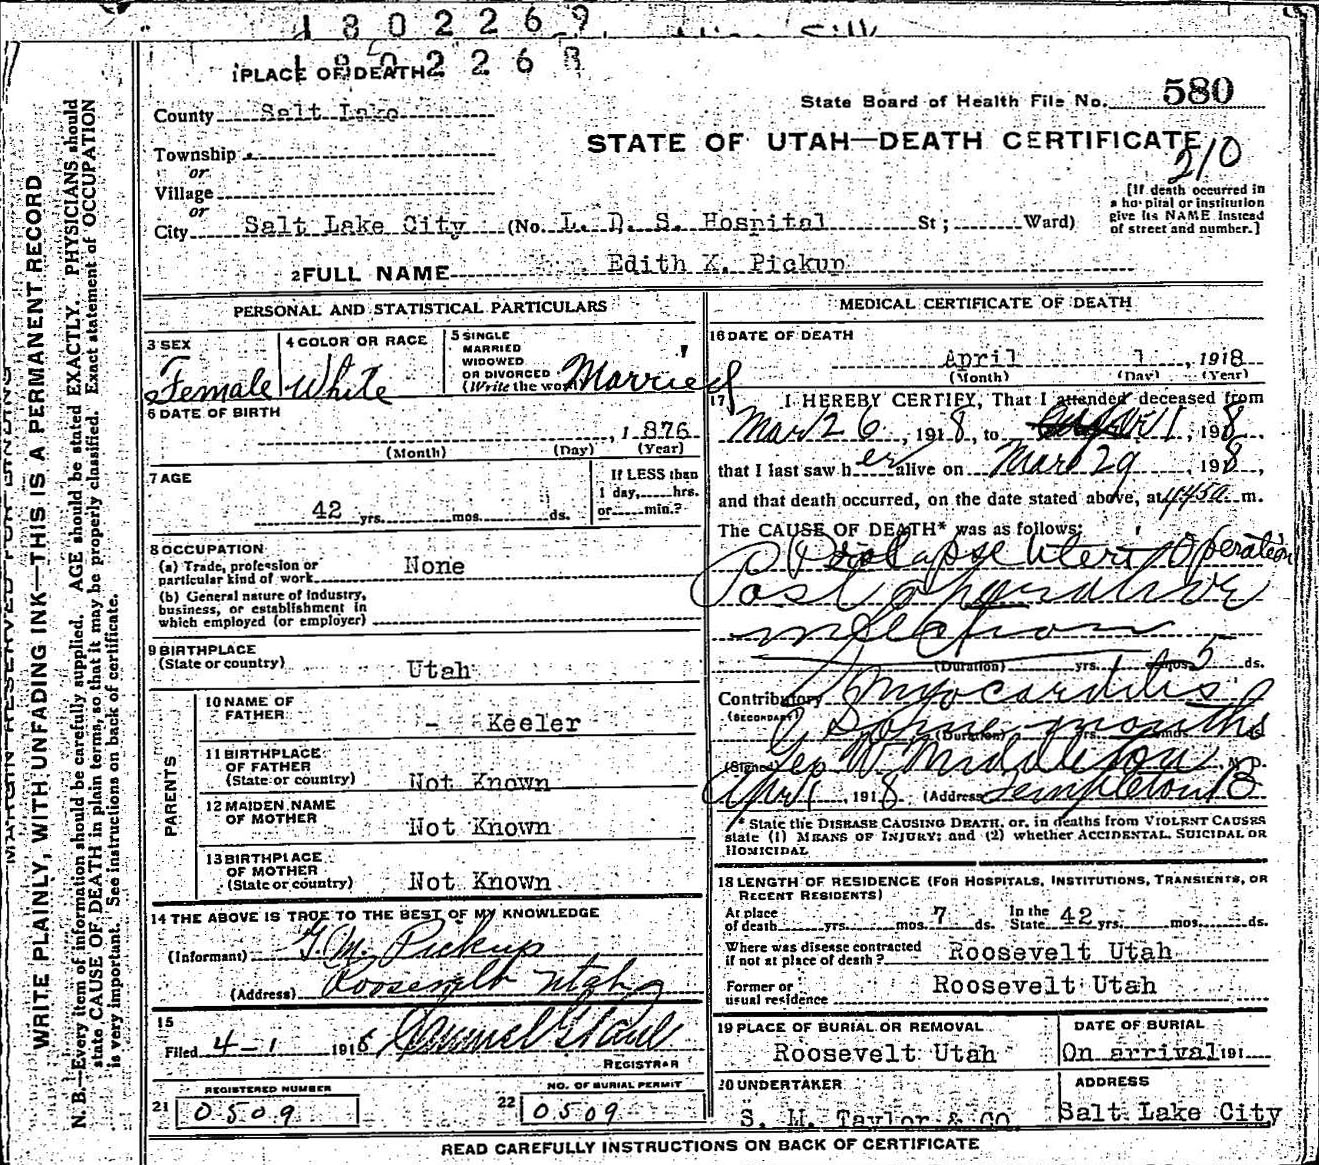 1802269
1802268
1 PLACE OF DEATH
State Board of Health File No. 580
County Salt Lake
STATE OF UTAH—DEATH CERTIFICATE
210
Township
or
Village
or
[If death occurred in
a hospital or institution
give its NAME instead
of street and number.]
City Salt Lake City (No. L. D. S. Hospital St; Ward)
2 FULL NAME Edith K. Pickup
PERSONAL AND STATISTICAL PARTICULARS
3 SEX
Female
4 COLOR OR RACE
White
5 SINGLE
MARRIED
WIDOWED
OR DIVORCED
(Write the word) Married
6 DATE OF BIRTH
, 1876
(Month) (Day) (Year)
7 AGE
42 yrs. mos. ds.
If LESS than
1 day, hrs.
or min.?
8 OCCUPATION
(a) Trade, profession or
particular kind of work None
(b) General nature of industry,
business, or establishment in
which employed (or employer)
9 BIRTHPLACE
(State or country) Utah
PARENTS
10 NAME OF
FATHER - Keeler
11 BIRTHPLACE
OF FATHER
(State or country) Not Known
12 MAIDEN NAME
OF MOTHER Not Known
13 BIRTHPLACE
OF MOTHER
(State or country) Not Known
14 THE ABOVE IS TRUE TO THE BEST OF MY KNOWLEDGE
(Informant) G. M. Pickup
(Address) Roosevelt Utah
15
Filed 4-1 1918
REGISTRAR
REGISTERED NUMBER
21 0509
NO. OF BURIAL PERMIT
22 0509
MEDICAL CERTIFICATE OF DEATH
16 DATE OF DEATH
April 1, 1918
(Month) (Day) (Year)
17 I HEREBY CERTIFY, That I attended deceased from
Mar 26, 1918, to 1, 1918,
that I last saw her alive on Mar 29, 1918,
and that death occurred, on the date stated above, at 445a m.
The CAUSE OF DEATH* was as follows:
Prolapse Uteri Operation
Post operative
infection
(Duration) yrs. mos. 5 ds.
Contributory Myocarditis
(SECONDARY)
(Duration) Some months yrs. mos. ds.
(Signed) Geo W Middleton, M.D.
Apr 1, 1918 (Address) Templeton B
* State the DISEASE CAUSING DEATH, or, in deaths from VIOLENT CAUSES
state (1) MEANS OF INJURY; and (2) whether ACCIDENTAL, SUICIDAL OR
HOMICIDAL
18 LENGTH OF RESIDENCE (FOR HOSPITALS, INSTITUTIONS, TRANSIENTS, OR
RECENT RESIDENTS)
At place
of death yrs. mos. 7 ds.
In the
State 42 yrs. mos. ds.
Where was disease contracted
if not at place of death? Roosevelt Utah
Former or
usual residence Roosevelt Utah
19 PLACE OF BURIAL OR REMOVAL
Roosevelt Utah
DATE OF BURIAL
On arrival 191
20 UNDERTAKER
S. M. Taylor & Co.
ADDRESS
Salt Lake City
READ CAREFULLY INSTRUCTIONS ON BACK OF CERTIFICATE
MARGIN RESERVED FOR BINDING
WRITE PLAINLY, WITH UNFADING INK—THIS IS A PERMANENT RECORD
N. B.—Every item of information should be carefully supplied. AGE should be stated EXACTLY. PHYSICIANS should
state CAUSE OF DEATH in plain terms, so that it may be properly classified. Exact statement of OCCUPATION
is very important. See instructions on back of certificate.